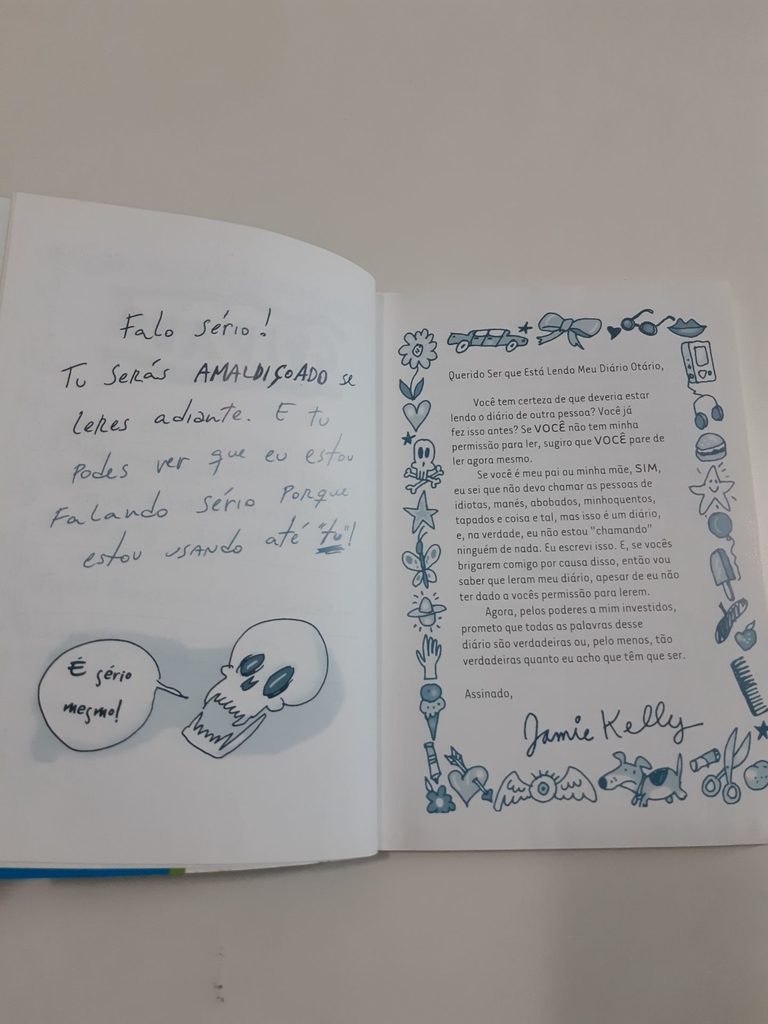 Falo sério!
Tu serás AMALDIÇOADO se
leres adiante. E tu
podes ver que eu estou
falando sério porque
estou usando até "tu"!
É sério
mesmo!
Querido Ser que Está Lendo Meu Diário Otário,
Você tem certeza de que deveria estar
lendo o diário de outra pessoa? Você já
fez isso antes? Se VOCÊ não tem minha
permissão para ler, sugiro que VOCÊ pare de
ler agora mesmo.
Se você é meu pai ou minha mãe, SIM,
eu sei que não devo chamar as pessoas de
idiotas, manés, abobados, minhoquentos,
tapados e coisa e tal, mas isso é um diário,
e, na verdade, eu não estou "chamando"
ninguém de nada. Eu escrevi isso. E, se vocês
brigarem comigo por causa disso, então vou
saber que leram meu diário, apesar de eu não
ter dado a vocês permissão para lerem.
Agora, pelos poderes a mim investidos,
prometo que todas as palavras desse
diário são verdadeiras ou, pelo menos, tão
verdadeiras quanto eu acho que têm que ser.
Assinado,
Jamie Kelly